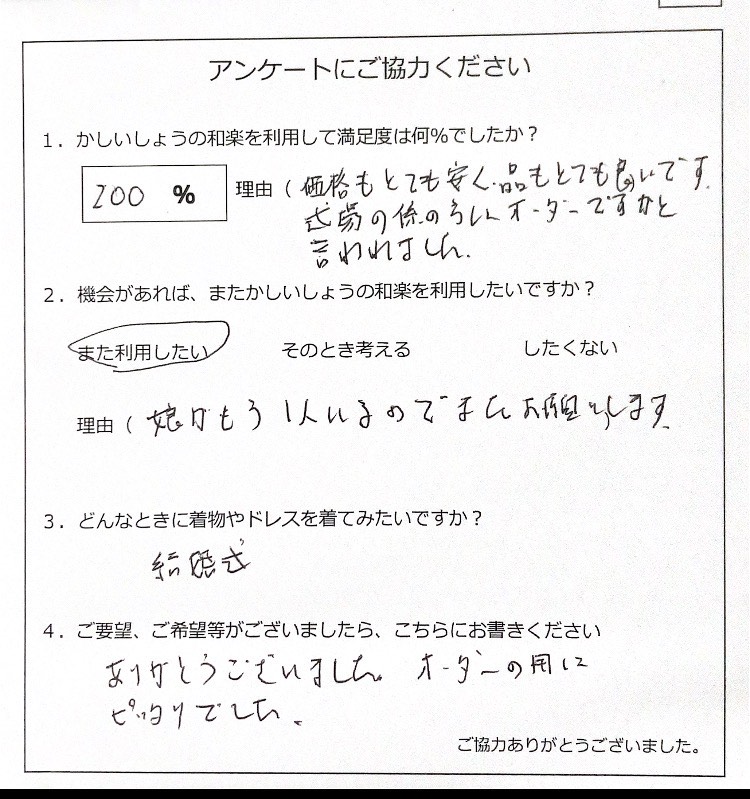 アンケートにご協力ください
1．かしいしょうの和楽を利用して満足度は何%でしたか？
200 %
理由（価格もとても安く、品もとても良いです。
式場の係のうしん オーダーですかと
言われました。
2．機会があれば、またかしいしょうの和楽を利用したいですか？
また利用したい そのとき考える したくない
理由（娘がもう1人いるのでまたお願いします。
3．どんなときに着物やドレスを着てみたいですか？
結婚式
4．ご要望、ご希望等がございましたら、こちらにお書きください
ありがとうございました。オーダーの用に
ピッタリでした。
ご協力ありがとうございました。